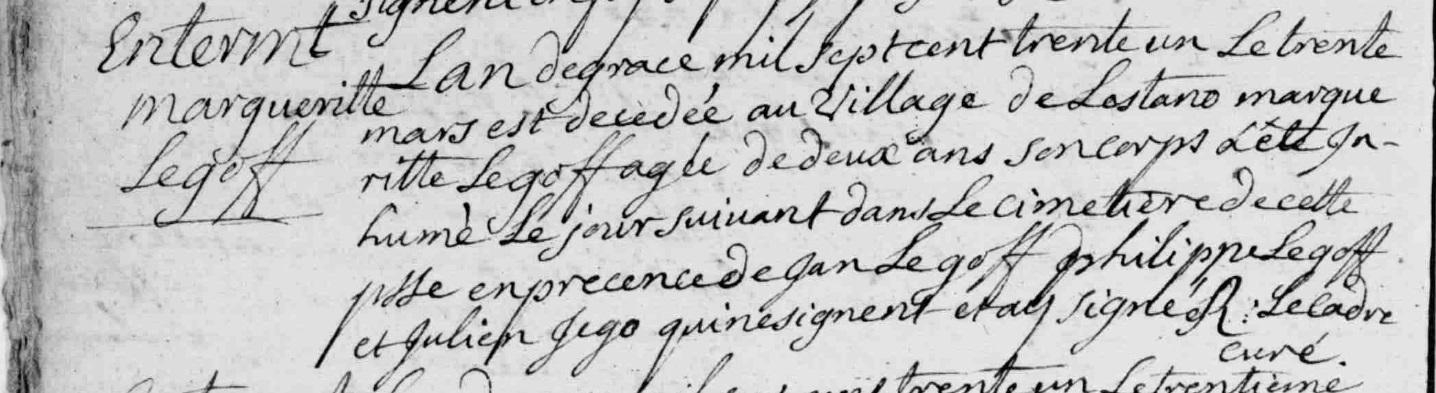 Entermt
marguerite
Le goff
Lan de grace mil sept cent trente un Le trente
mars est decedée au village de Lostano margue
ritte Le goff agée de deux ans son corps a été In-
humé Le jour suivant dans Le cimetiere de cette
psse en precence de Jan Le goff philippe Le goff
et Julien Jego qui ne signent et ay signé R: Le Cadre
curé.
trente un Le trentième